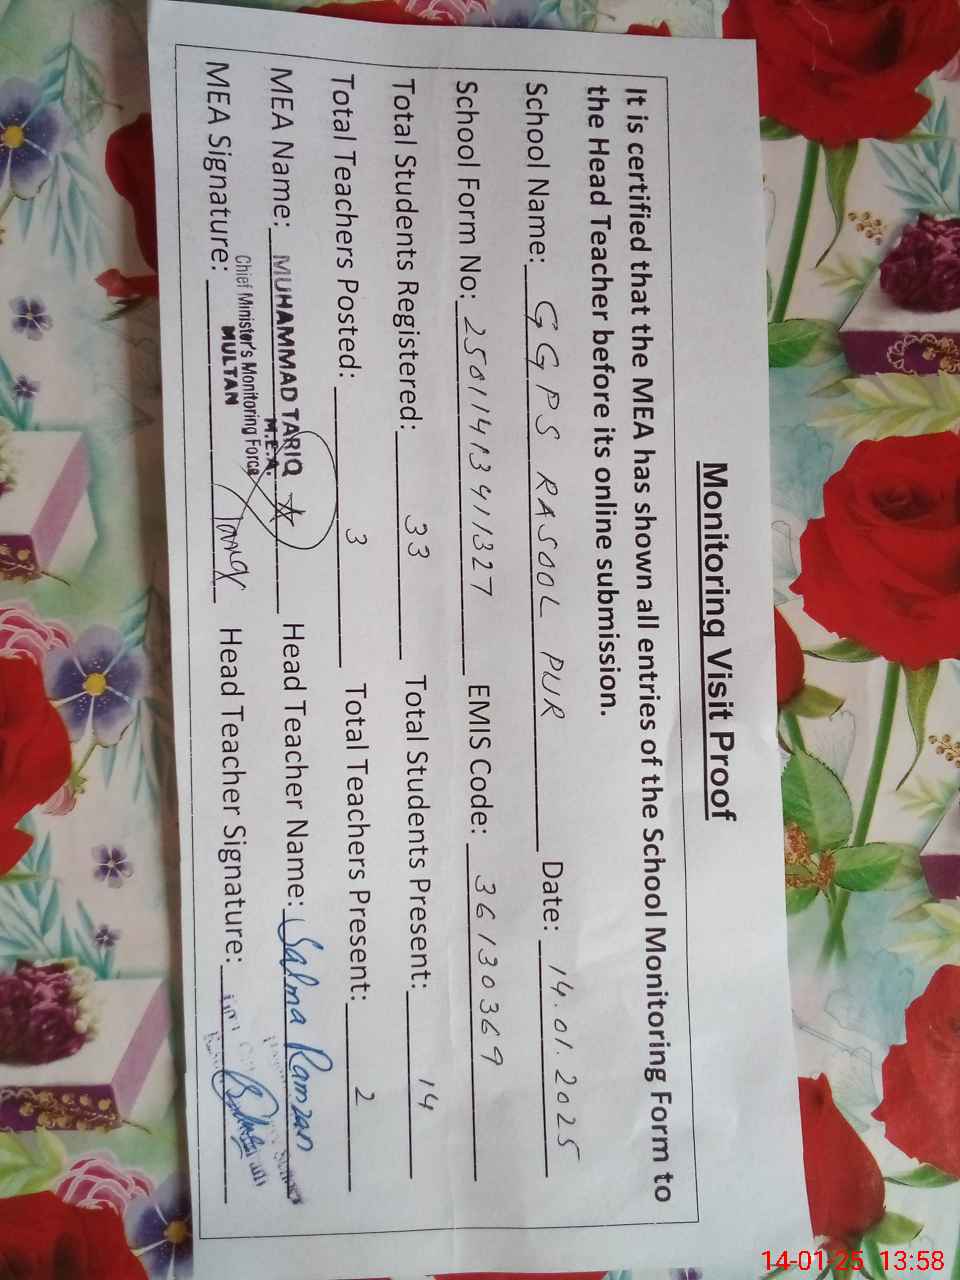 Monitoring Visit Proof
It is certified that the MEA has shown all entries of the School Monitoring Form to
the Head Teacher before its online submission.
School Name: GGPS RASOOL PUR Date: 14.01.2025
School Form No: 25011413411327 EMIS Code: 36130369
Total Students Registered: 33 Total Students Present: 14
Total Teachers Posted: 3 Total Teachers Present: 2
MEA Name: MUHAMMAD TARIQ Head Teacher Name: Salma Ramzan
M.E.A.
Chief Minister's Monitoring Force
MULTAN
MEA Signature: Head Teacher Signature:
14-01-25 13:58